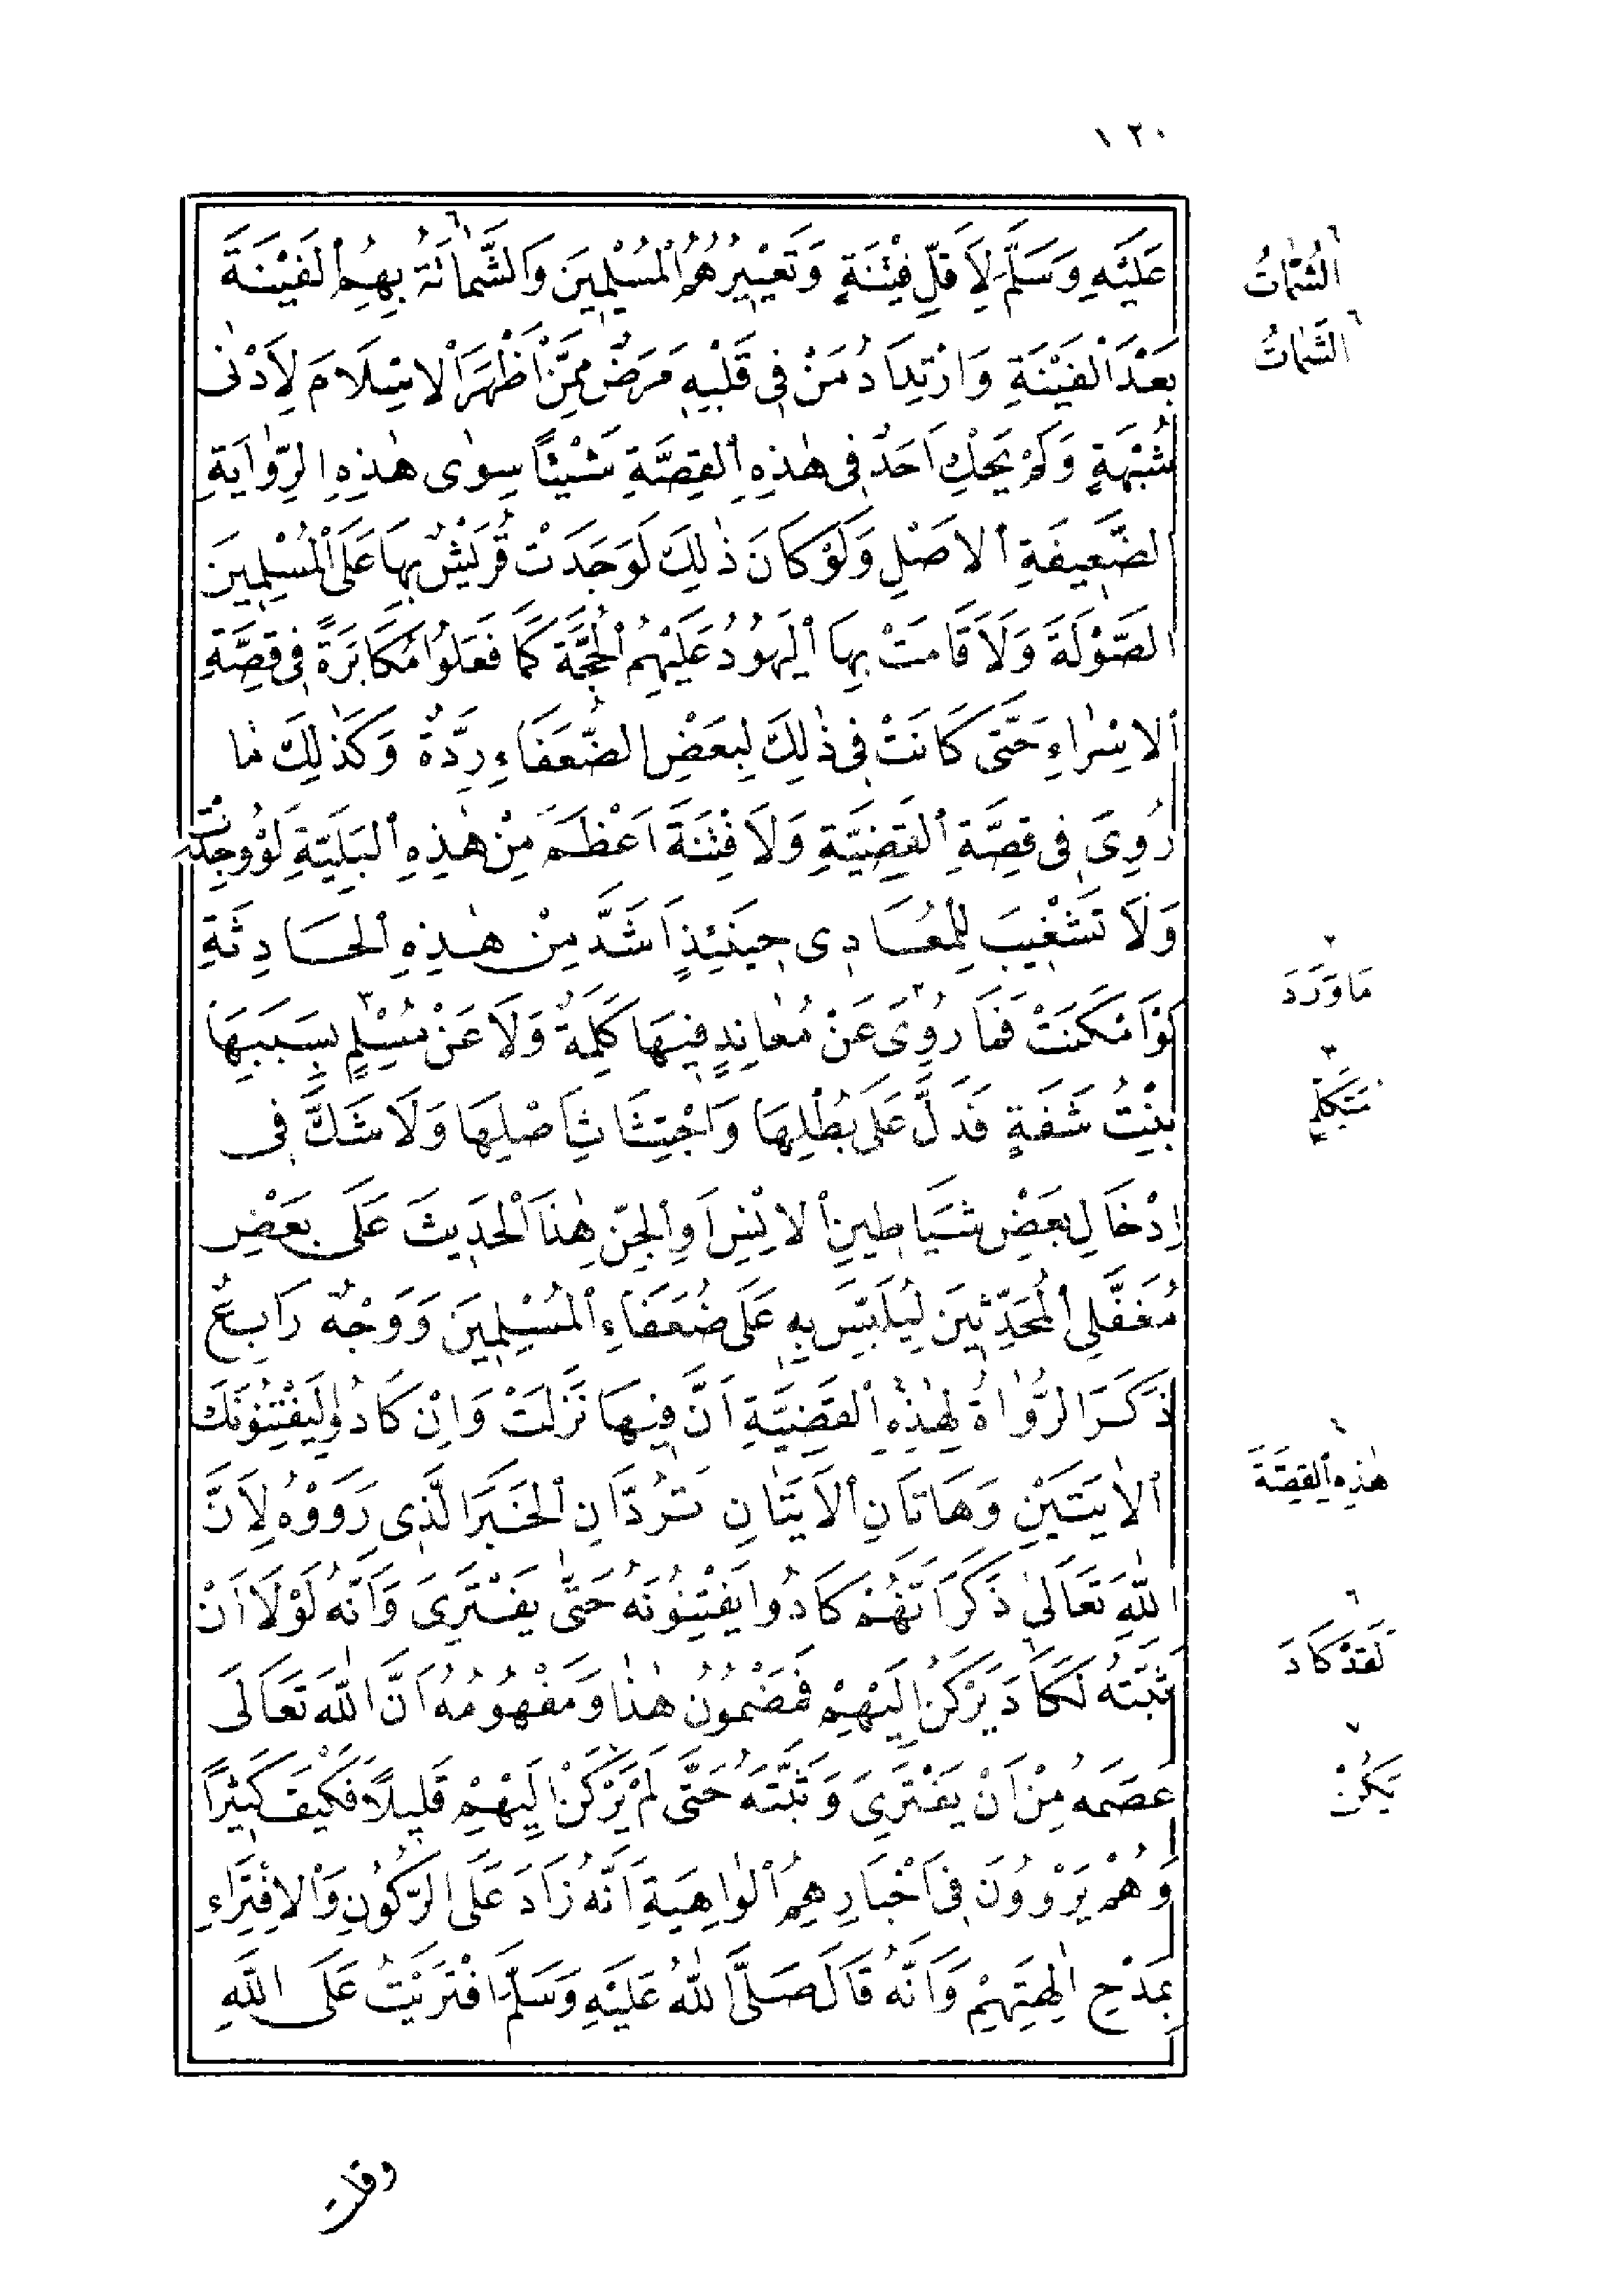 ١٢٠
عَلَيْهِ وَسَلَّمَ لِأَقَلِّ فِتْنَةٍ وَتَعْيِيرُهُمُ الْمُسْلِمِينَ وَالشَّمَاتَةُ بِهِمُ الْفَيْنَةَ
بَعْدَ الْفَيْنَةِ وَارْتِدَادُ مَنْ فِي قَلْبِهِ مَرَضٌ مِمَّنْ أَظْهَرَ الْإِسْلَامَ لِأَدْنَى
شُبْهَةٍ وَلَمْ يَحْكِ أَحَدٌ فِي هَذِهِ الْقِصَّةِ شَيْئًا سِوَى هَذِهِ الرِّوَايَةِ
الضَّعِيفَةِ الْأَصْلِ وَلَوْ كَانَ ذَلِكَ لَوَجَدَتْ قُرَيْشٌ بِهَا عَلَى الْمُسْلِمِينَ
الصَّوْلَةَ وَلَأَقَامَتْ بِهَا الْيَهُودُ عَلَيْهِمُ الْحُجَّةَ كَمَا فَعَلُوا مُكَابَرَةً فِي قِصَّةِ
الْإِسْرَاءِ حَتَّى كَانَتْ فِي ذَلِكَ لِبَعْضِ الضُّعَفَاءِ رِدَّةٌ وَكَذَلِكَ مَا
رُوِيَ فِي قِصَّةِ الْقَضِيَّةِ وَلَا فِتْنَةَ أَعْظَمَ مِنْ هَذِهِ الْبَلِيَّةِ لَوْ وُجِدَتْ
وَلَا تَشْغِيبَ لِلْمُعَادِي حِينَئِذٍ أَشَدَّ مِنْ هَذِهِ الْحَادِثَةِ
لَوْ أَمْكَنَتْ فَمَا رُوِيَ عَنْ مُعَانِدٍ فِيهَا كَلِمَةٌ وَلَا عَنْ مُسْلِمٍ بِسَبَبِهَا
بِنْتُ شَفَةٍ فَدَلَّ عَلَى بُطْلِهَا وَاجْتِثَاثِ أَصْلِهَا وَلَا شَكَّ فِي
إِدْخَالِ بَعْضِ شَيَاطِينِ الْإِنْسِ أَوِ الْجِنِّ هَذَا الْحَدِيثَ عَلَى بَعْضِ
مُغَفَّلِي الْمُحَدِّثِينَ لِيُلَبِّسَ بِهِ عَلَى ضُعَفَاءِ الْمُسْلِمِينَ وَوَجْهٌ رَابِعٌ
ذَكَرَ الرُّوَاةُ لِهَذِهِ الْقَضِيَّةِ أَنَّ فِيهَا نَزَلَتْ وَإِنْ كَادُوا لَيَفْتِنُونَكَ
الْآيَتَيْنِ وَهَاتَانِ الْآيَتَانِ تَرُدَّانِ الْخَبَرَ الَّذِي رَوَوْهُ لِأَنَّ
اللهَ تَعَالَى ذَكَرَ أَنَّهُمْ كَادُوا يَفْتِنُونَهُ حَتَّى يَفْتَرِيَ وَأَنَّهُ لَوْلَا أَنْ
ثَبَّتَهُ لَكَادَ يَرْكَنُ إِلَيْهِمْ فَمَضْمُونُ هَذَا وَمَفْهُومُهُ أَنَّ اللهَ تَعَالَى
عَصَمَهُ مِنْ أَنْ يَفْتَرِيَ وَثَبَّتَهُ حَتَّى لَمْ يَرْكَنْ إِلَيْهِمْ قَلِيلًا فَكَيْفَ كَثِيرًا
وَهُمْ يَرْوُونَ فِي أَخْبَارِهِمُ الْوَاهِيَةِ أَنَّهُ زَادَ عَلَى الرُّكُونِ وَالْافْتِرَاءِ
بِمَدْحِ آلِهَتِهِمْ وَأَنَّهُ قَالَ صَلَّى اللهُ عَلَيْهِ وَسَلَّمَ افْتَرَيْتُ عَلَى اللهِ
وقلت
٦
الشُّمَّاتُ
٦
الشَّمَاتُ
٢
مَا وَرَدَ
٣
مُتَكَلِّمٍ
٤
هَذِهِ الْقِصَّةَ
٦
لَقَدْ كَادَ
٧
يَكُنْ